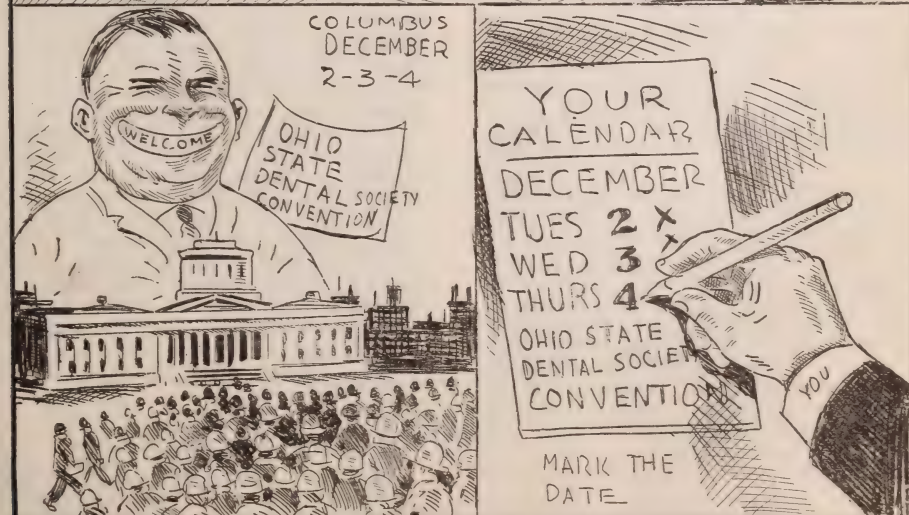 COLUMBUS
DECEMBER
2-3-4
WELCOME
OHIO
STATE
DENTAL SOCIETY
CONVENTION
YOUR
CALENDAR
DECEMBER
TUES 2 X
WED 3 X
THURS 4
OHIO STATE
DENTAL SOCIETY
CONVENTION
YOU
MARK THE
DATE